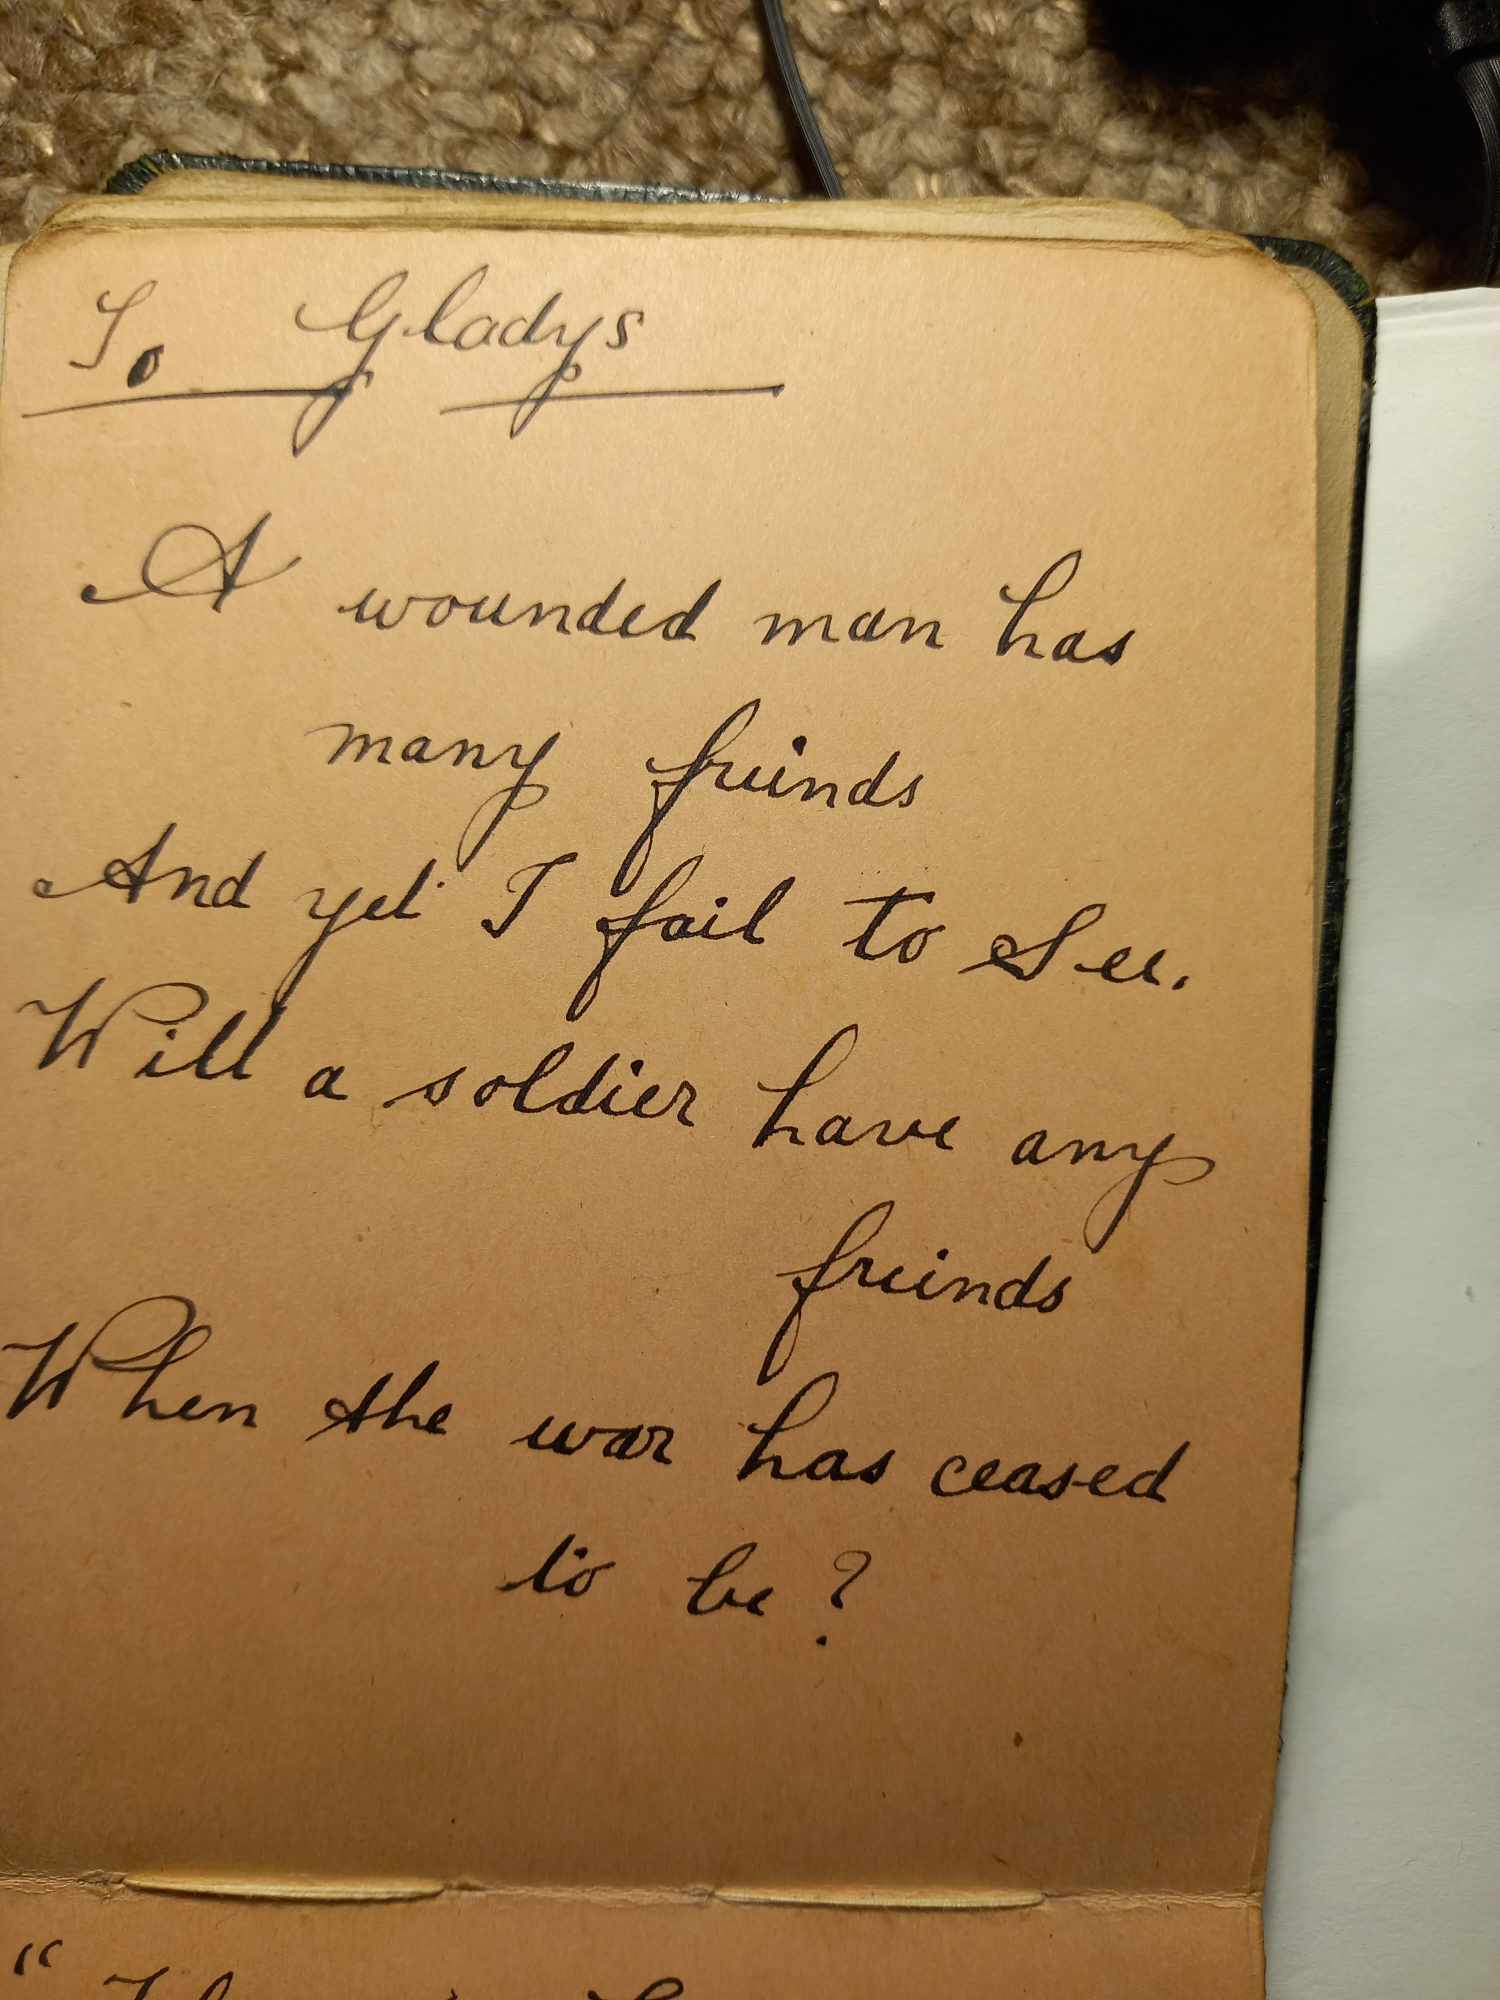 To Gladys
A wounded man has
many freinds
And yet I fail to See.
Will a soldier have any
freinds
When the war has ceased
to be?
"